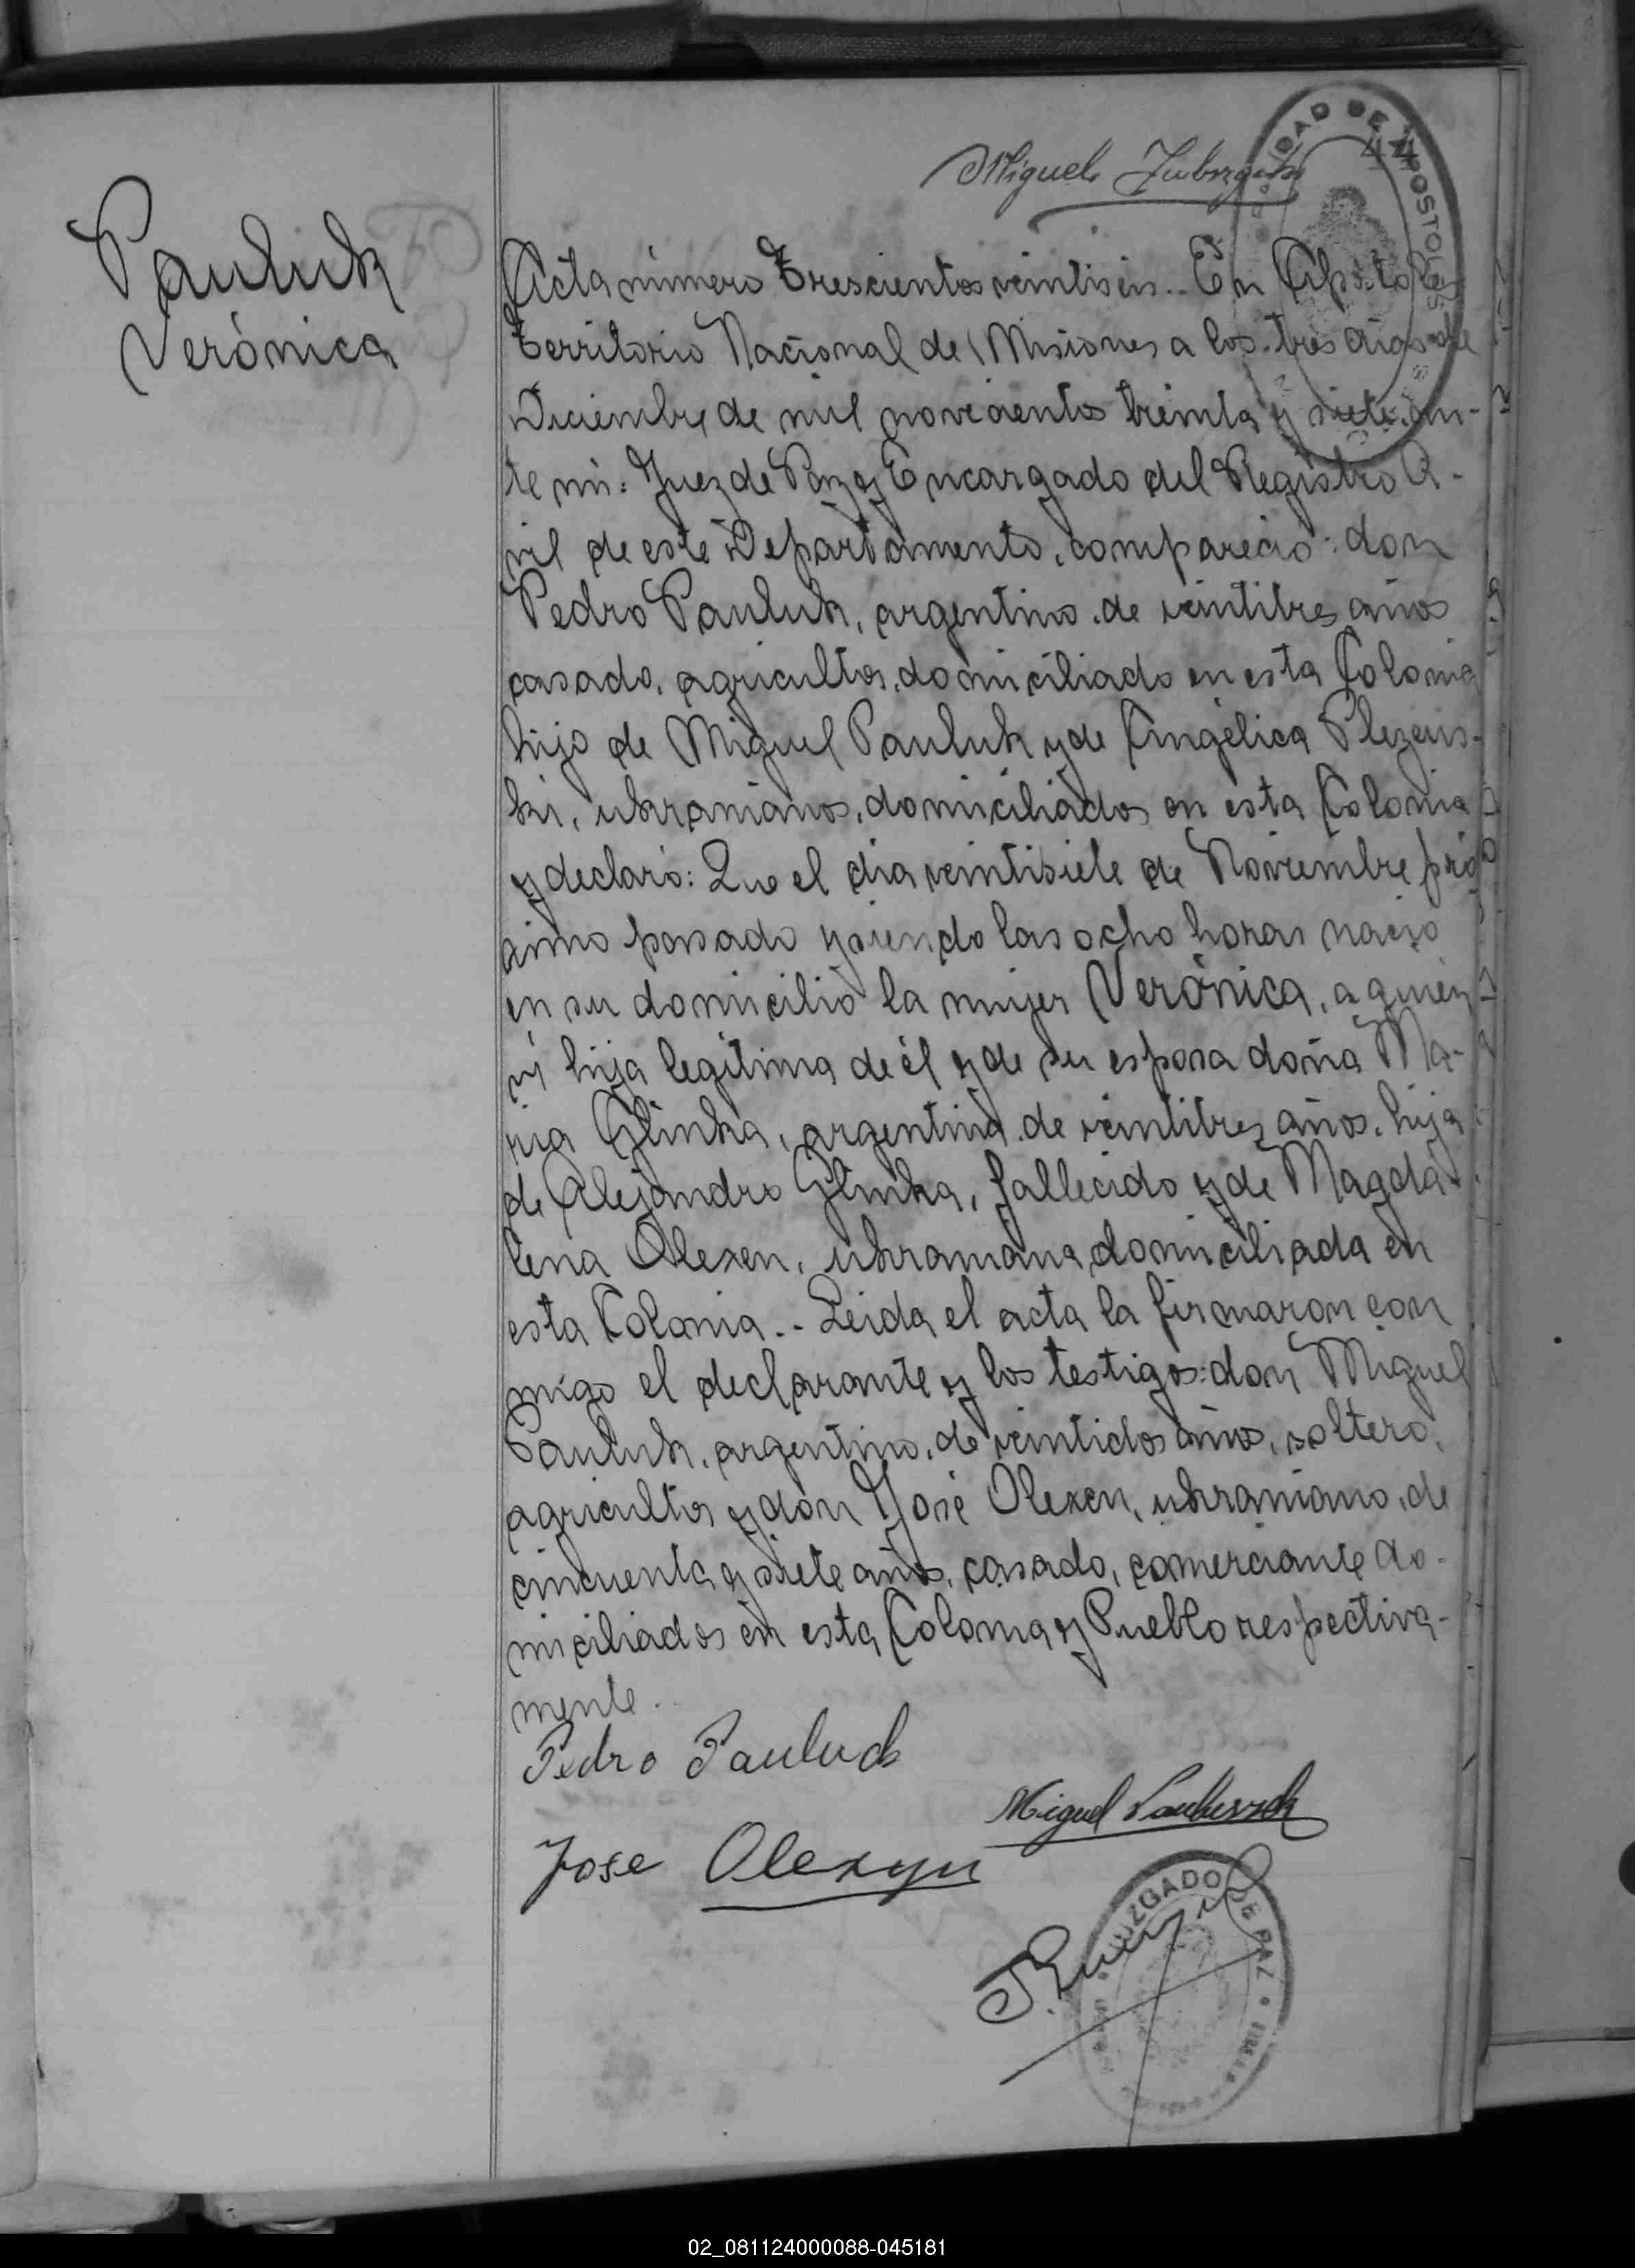 Miguel
44
Pauluk
Verónica
Acta número Trescientos veintiseis.. En Apóstoles
Territorio Nacional de Misiones a los tres dias de
Diciembre de mil novecientos treinta y siete, an-
te mi: Juez de Paz y Encargado del Registro Ci-
vil de este Departamento, compareció: don
Pedro Pauluk, argentino, de veintitres años
casado, agricultor, domiciliado en esta Colonia
hijo de Miguel Pauluk y de Angélica
ki, ukranianos, domiciliados en esta Colonia
y declaró: Que el dia veintisiete de Noviembre pró
ximo pasado y siendo las ocho horas nació
en su domicilio la mujer Verónica, a quien
ví hija legítima de él y de su esposa doña Ma-
ria Glinka, argentina, de veintitres años, hija
de Alejandro Glinka, fallecido y de Magda-
lena Olexen, ukraniana, domiciliada en
esta Colonia.. Leida el acta la firmaron con
migo el declarante y los testigos: don Miguel
Pauluk, argentino, de veintidos años, soltero,
agricultor y don José Olexen, ukraniano, de
cincuenta y siete años, casado, comerciante do-
miciliados en esta Colonia y Pueblo respectiva-
mente.
Pedro Pauluck
Miguel
Jose Olexyn
JUZGADO DE PAZ
02_081124000088-045181